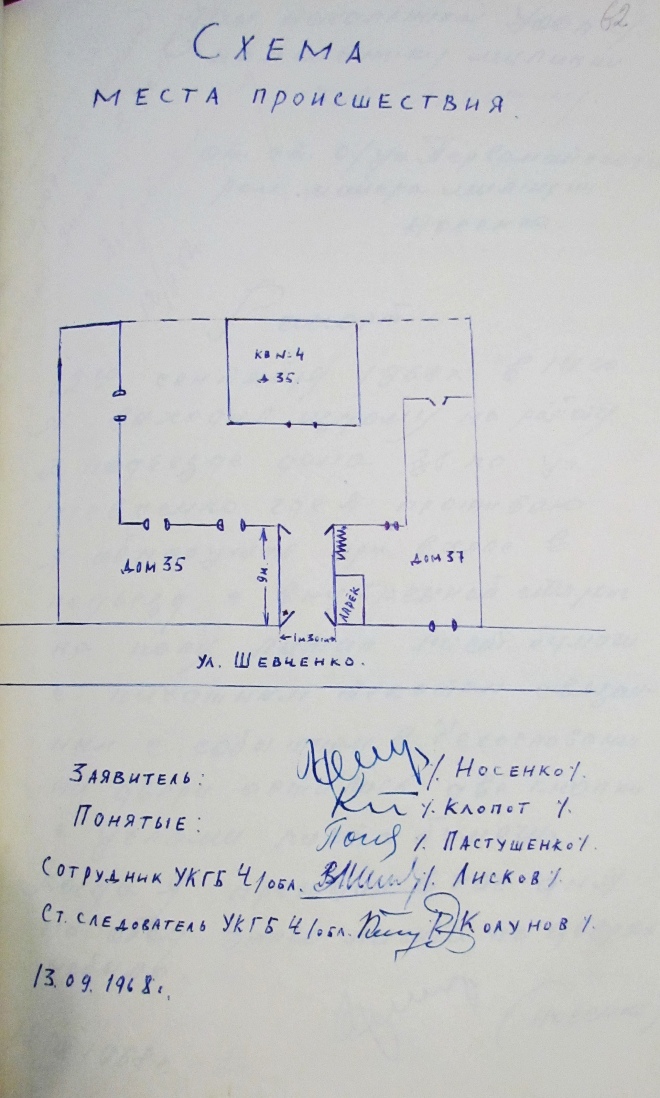 62
Схема
места происшествия.
кв №4
д 35.
дом 35
9м.
ларёк
дом 37
1м30см
ул. Шевченко.
Заявитель: /Носенко/.
/Клопот/
Понятые:
/Пастушенко/.
Сотрудник УКГБ Ч/обл. /Лисков/.
Ст. следователь УКГБ Ч/обл. /Колунов/.
13.09.1968г.